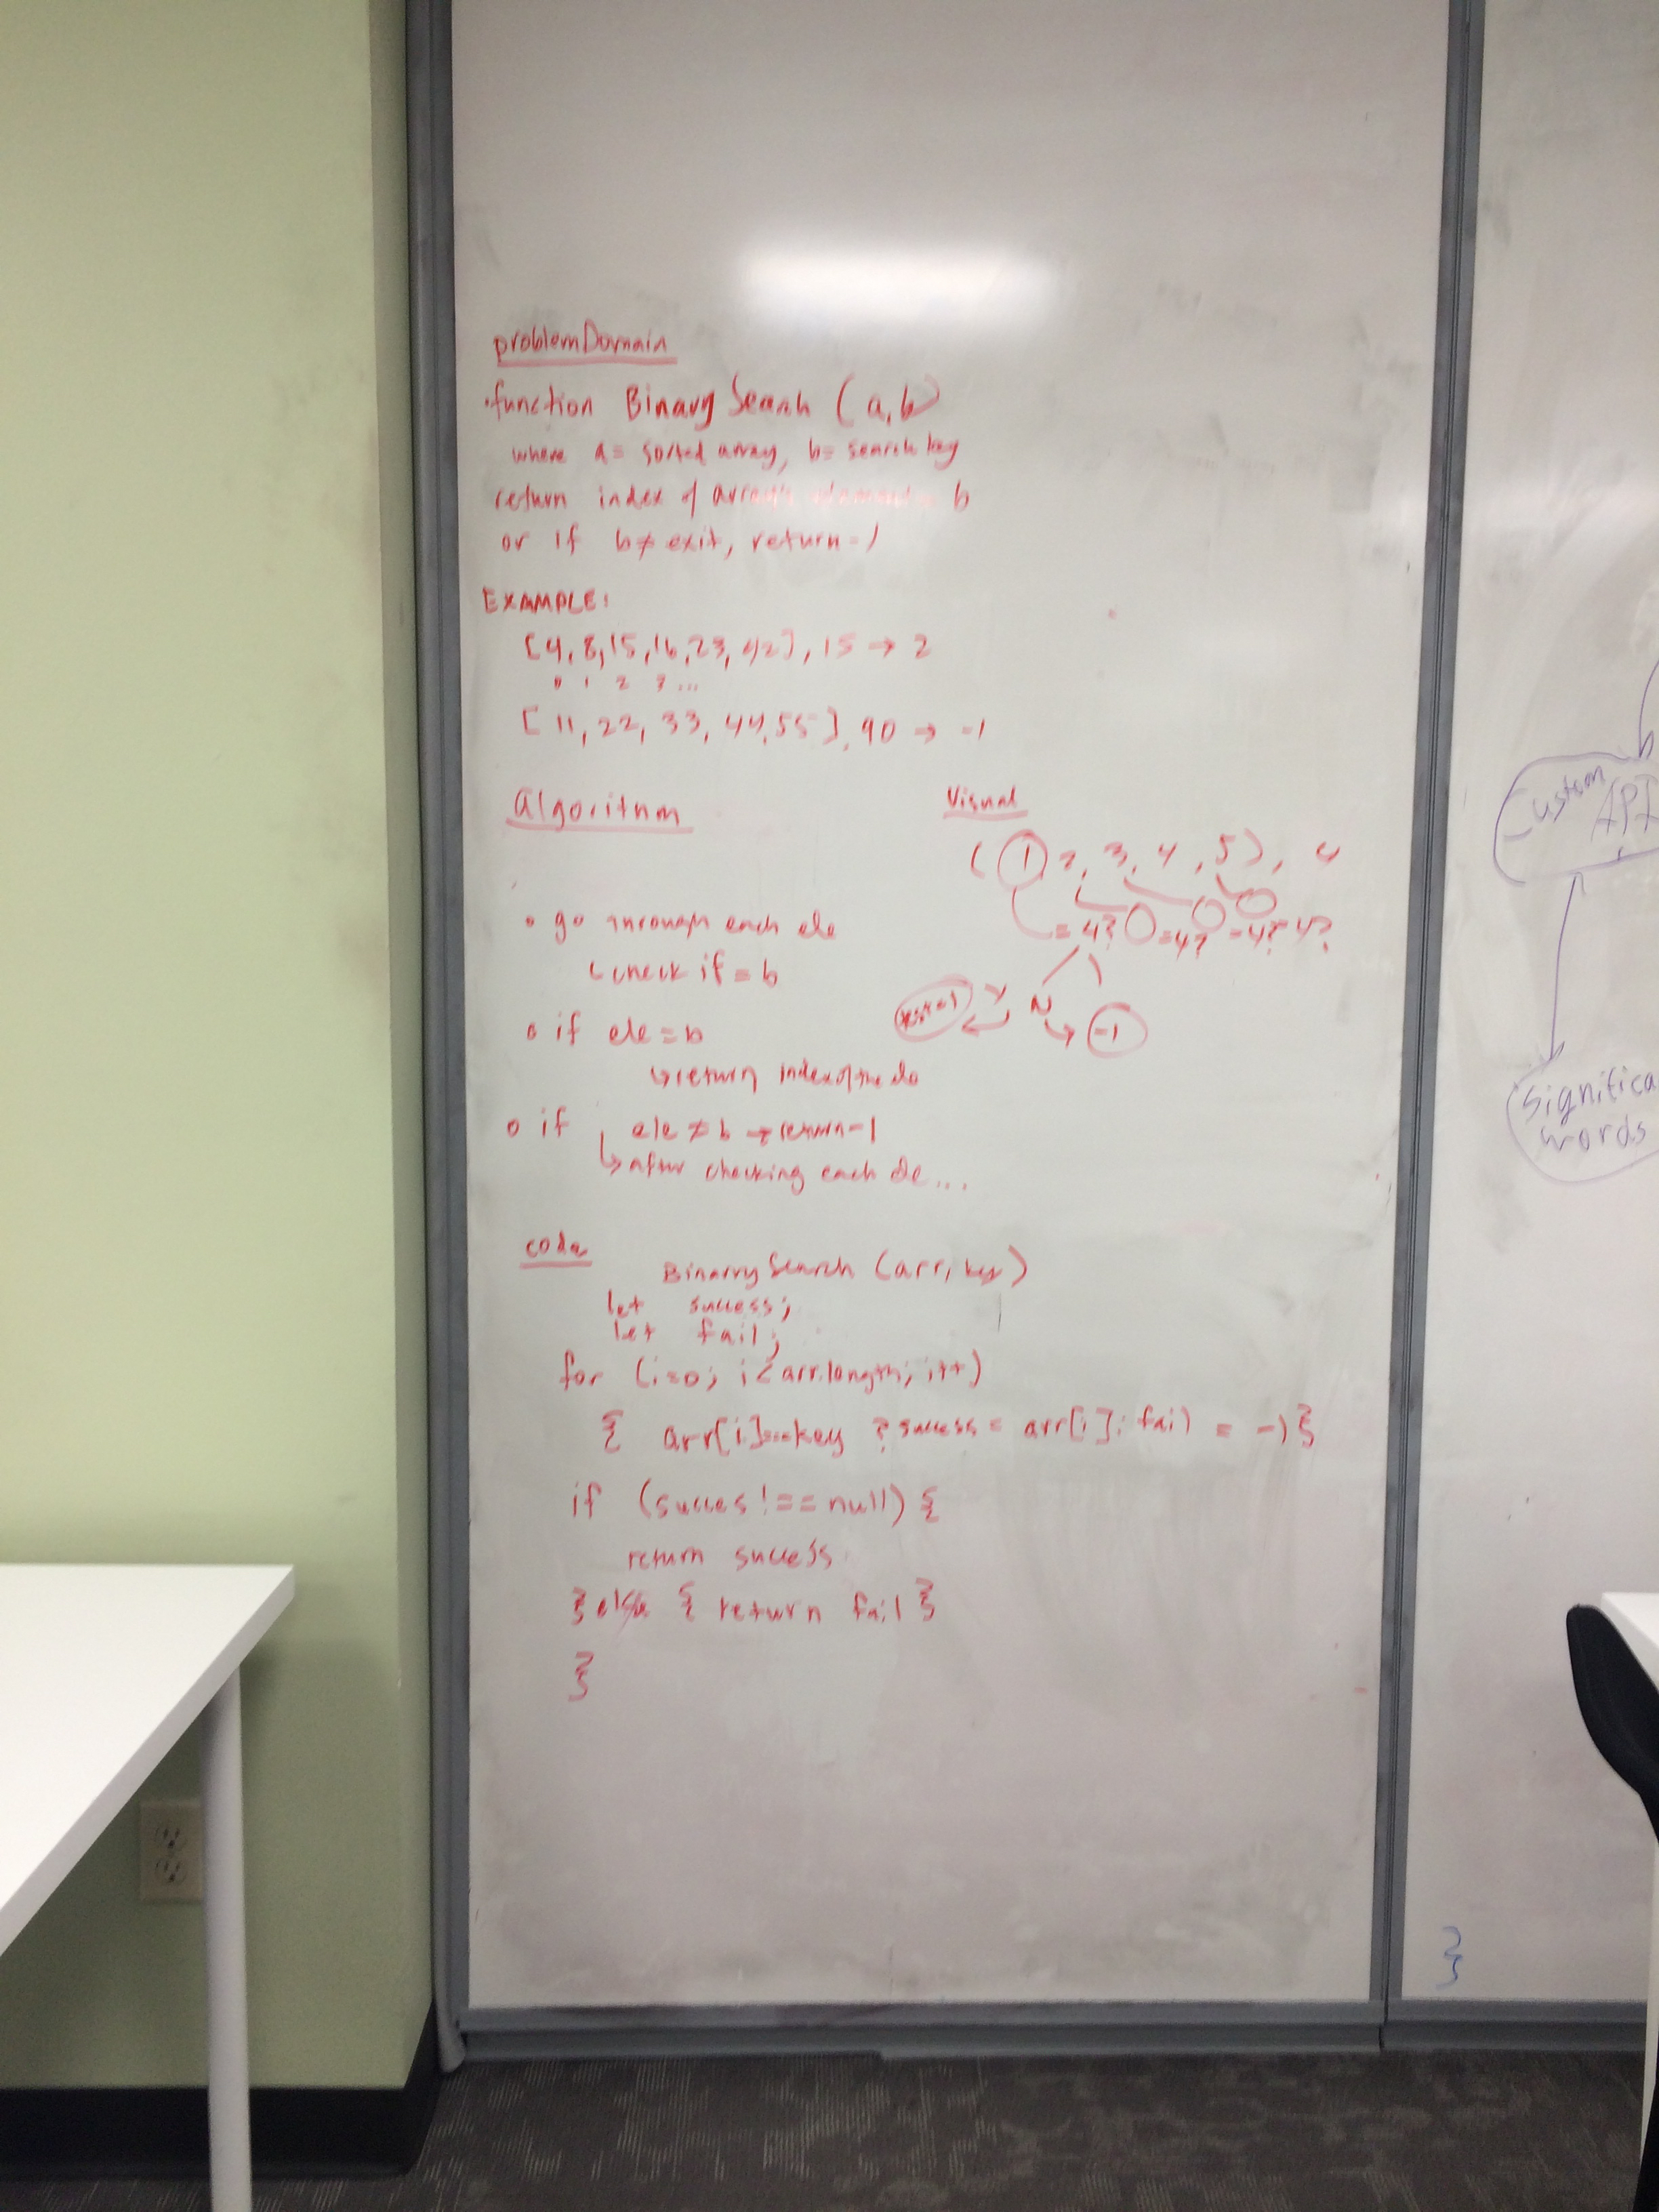 problemDomain
• function BinarySearch (a,b)
where a = sorted array, b = search key
return index of array's element = b
or if b ≠ exit, return -1
EXAMPLE:
[4, 8, 15, 16, 23, 42], 15 → 2
0 1 2 3 ...
[11, 22, 33, 44, 55], 90 → -1
algoritum
o go through each ele
check if = b
o if ele = b
↳ return index of the ele
o if ele ≠ b → return -1
↳ after checking each ele...
Visual
(1 2, 3, 4, 5), 4
= 4? = 4? = 4? = 4?
Y N
-1
code
BinarySearch (arr, key)
let success;
let fail;
for (i=0; i < arr.length; i++)
{ arr[i]===key ? success = arr[i] : fail = -1 }
if (succes !== null) {
return success
} else { return fail }
}
Custom API
Significa
words
}